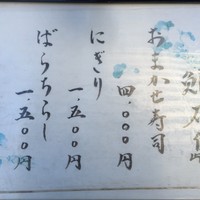 おまかせ寿司
四、〇〇〇円
にぎり
一、五〇〇円
ばらちらし
一、五〇〇円